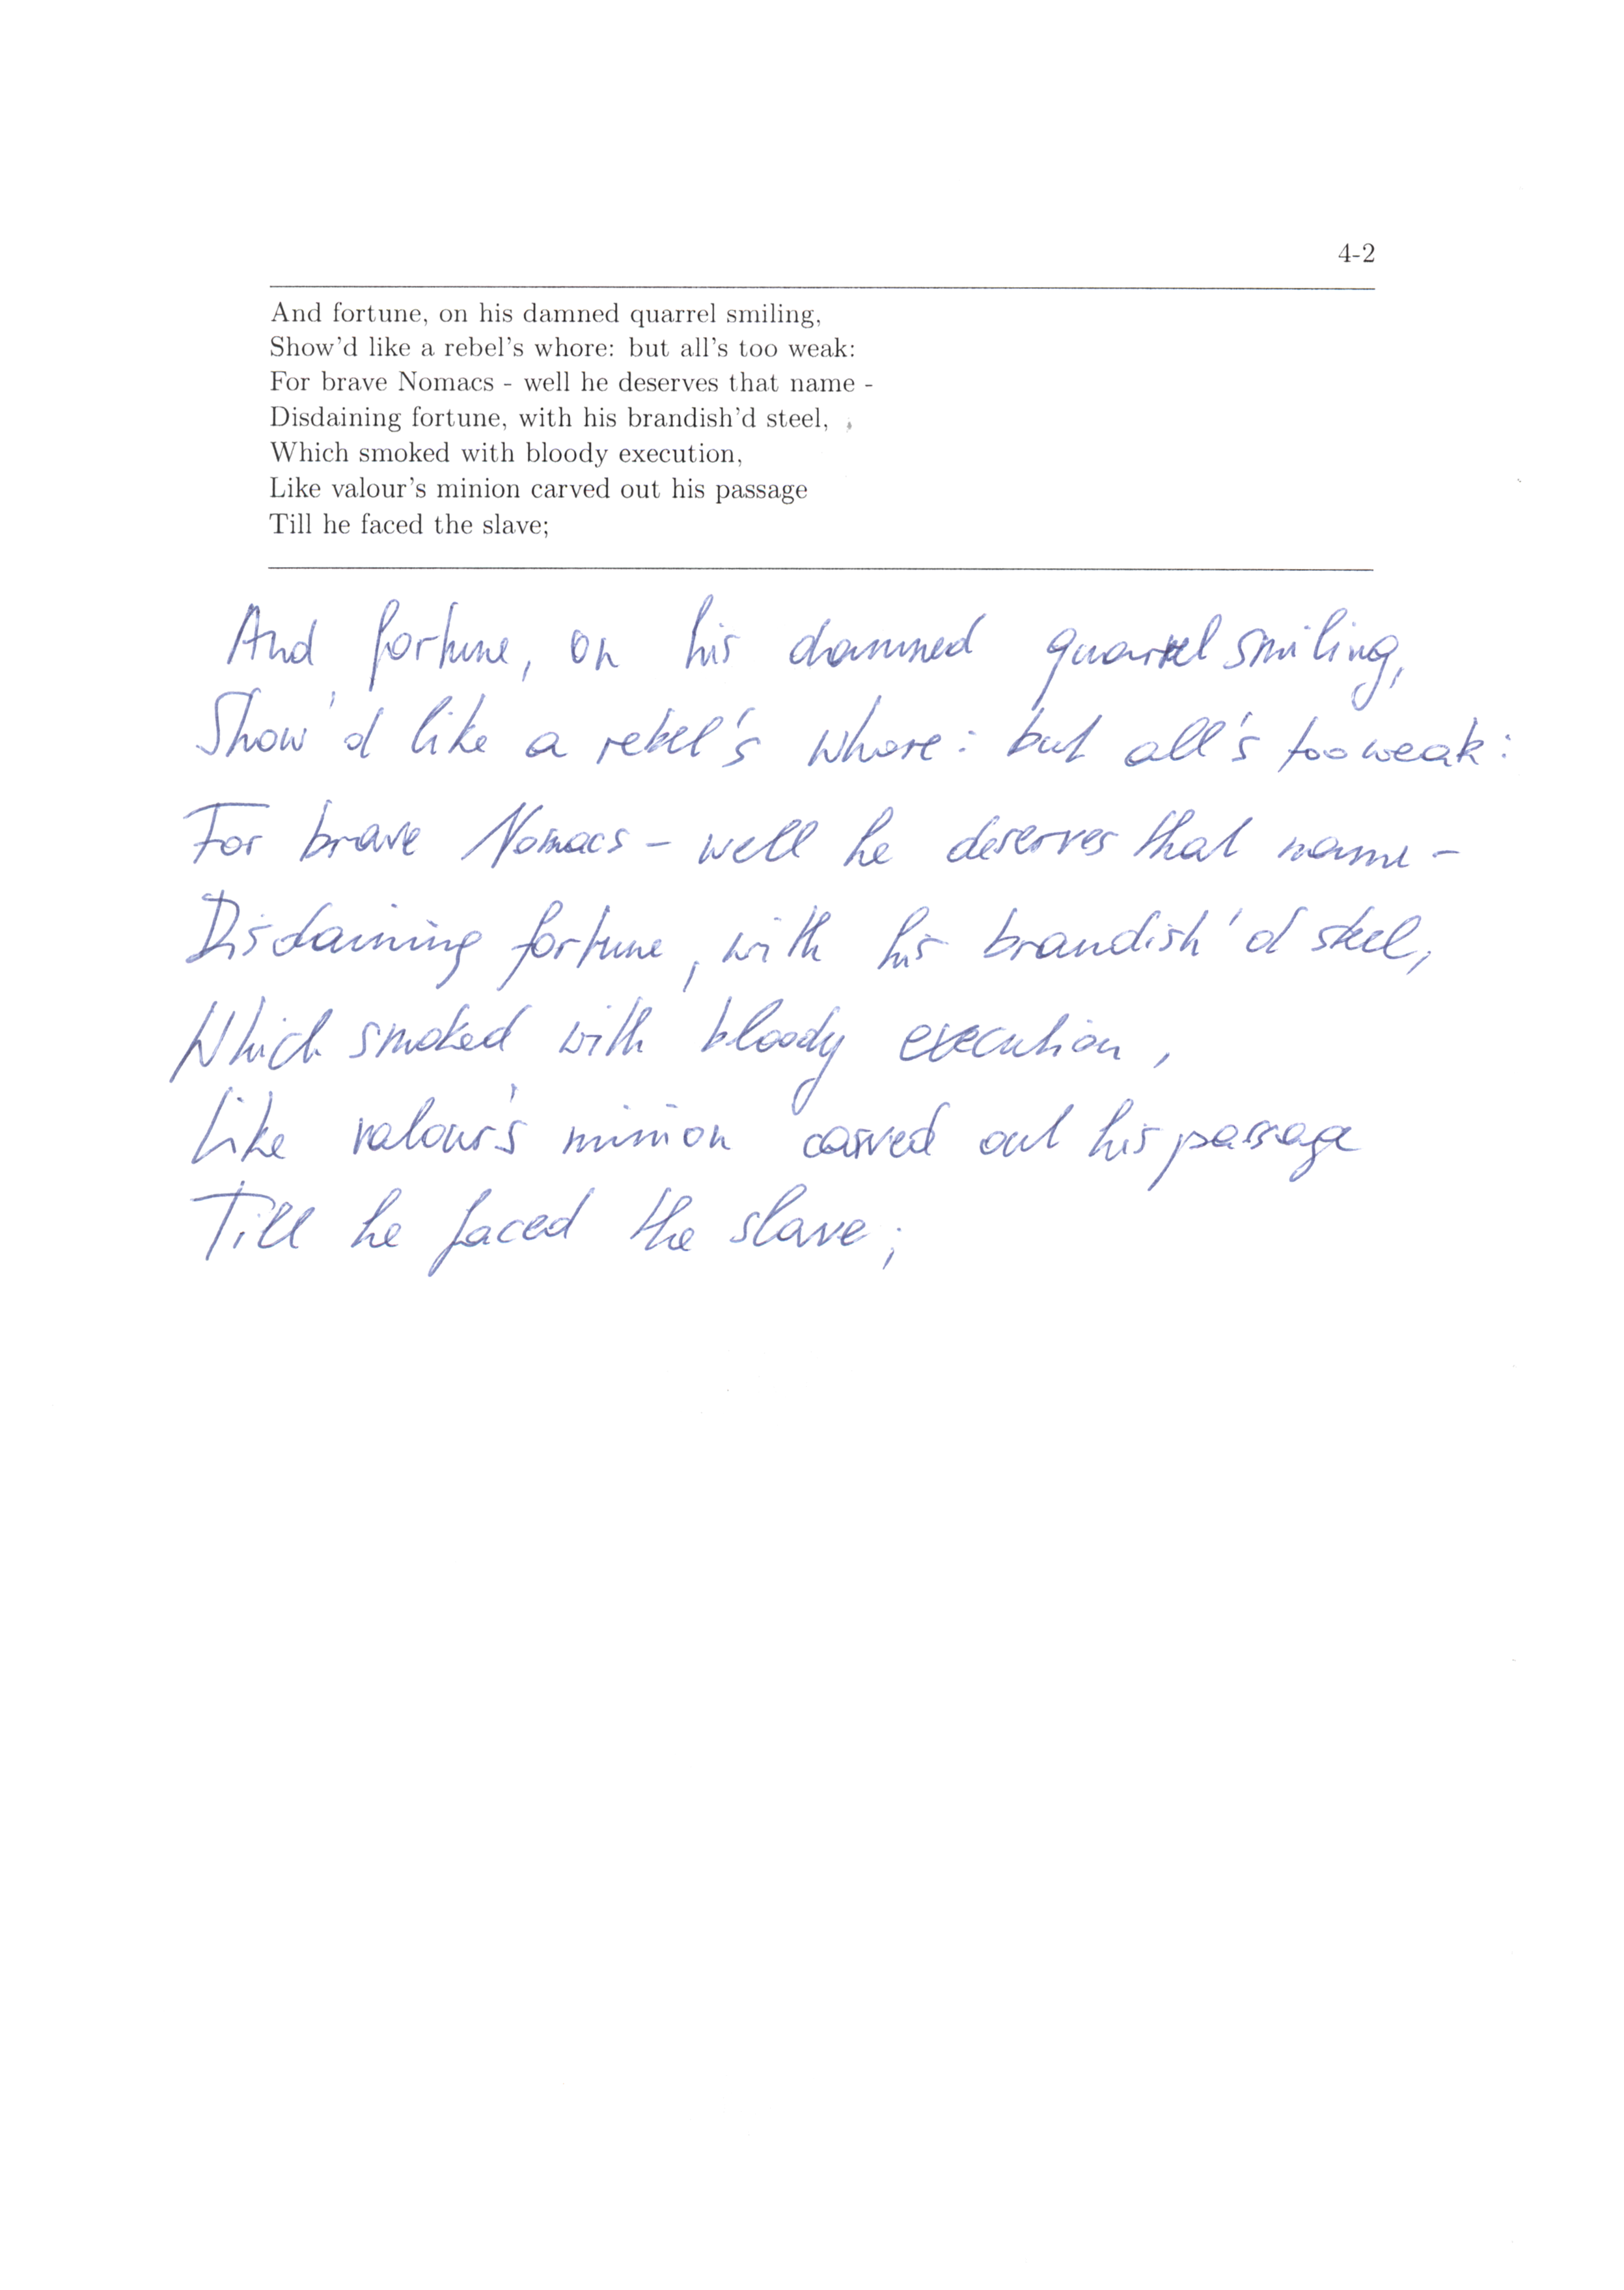 4-2
And fortune, on his damned quarrel smiling,
Show'd like a rebel's whore: but all's too weak:
For brave Nomacs - well he deserves that name -
Disdaining fortune, with his brandish'd steel,
Which smoked with bloody execution,
Like valour's minion carved out his passage
Till he faced the slave;
And fortune, on his damned quarrel smiling,
Show'd like a rebel's whore: but all's too weak:
For brave Nomacs - well he deserves that name -
Disdaining fortune, with his brandish'd steel,
Which smoked with bloody execution,
Like valour's minion carved out his passage
Till he faced the slave;